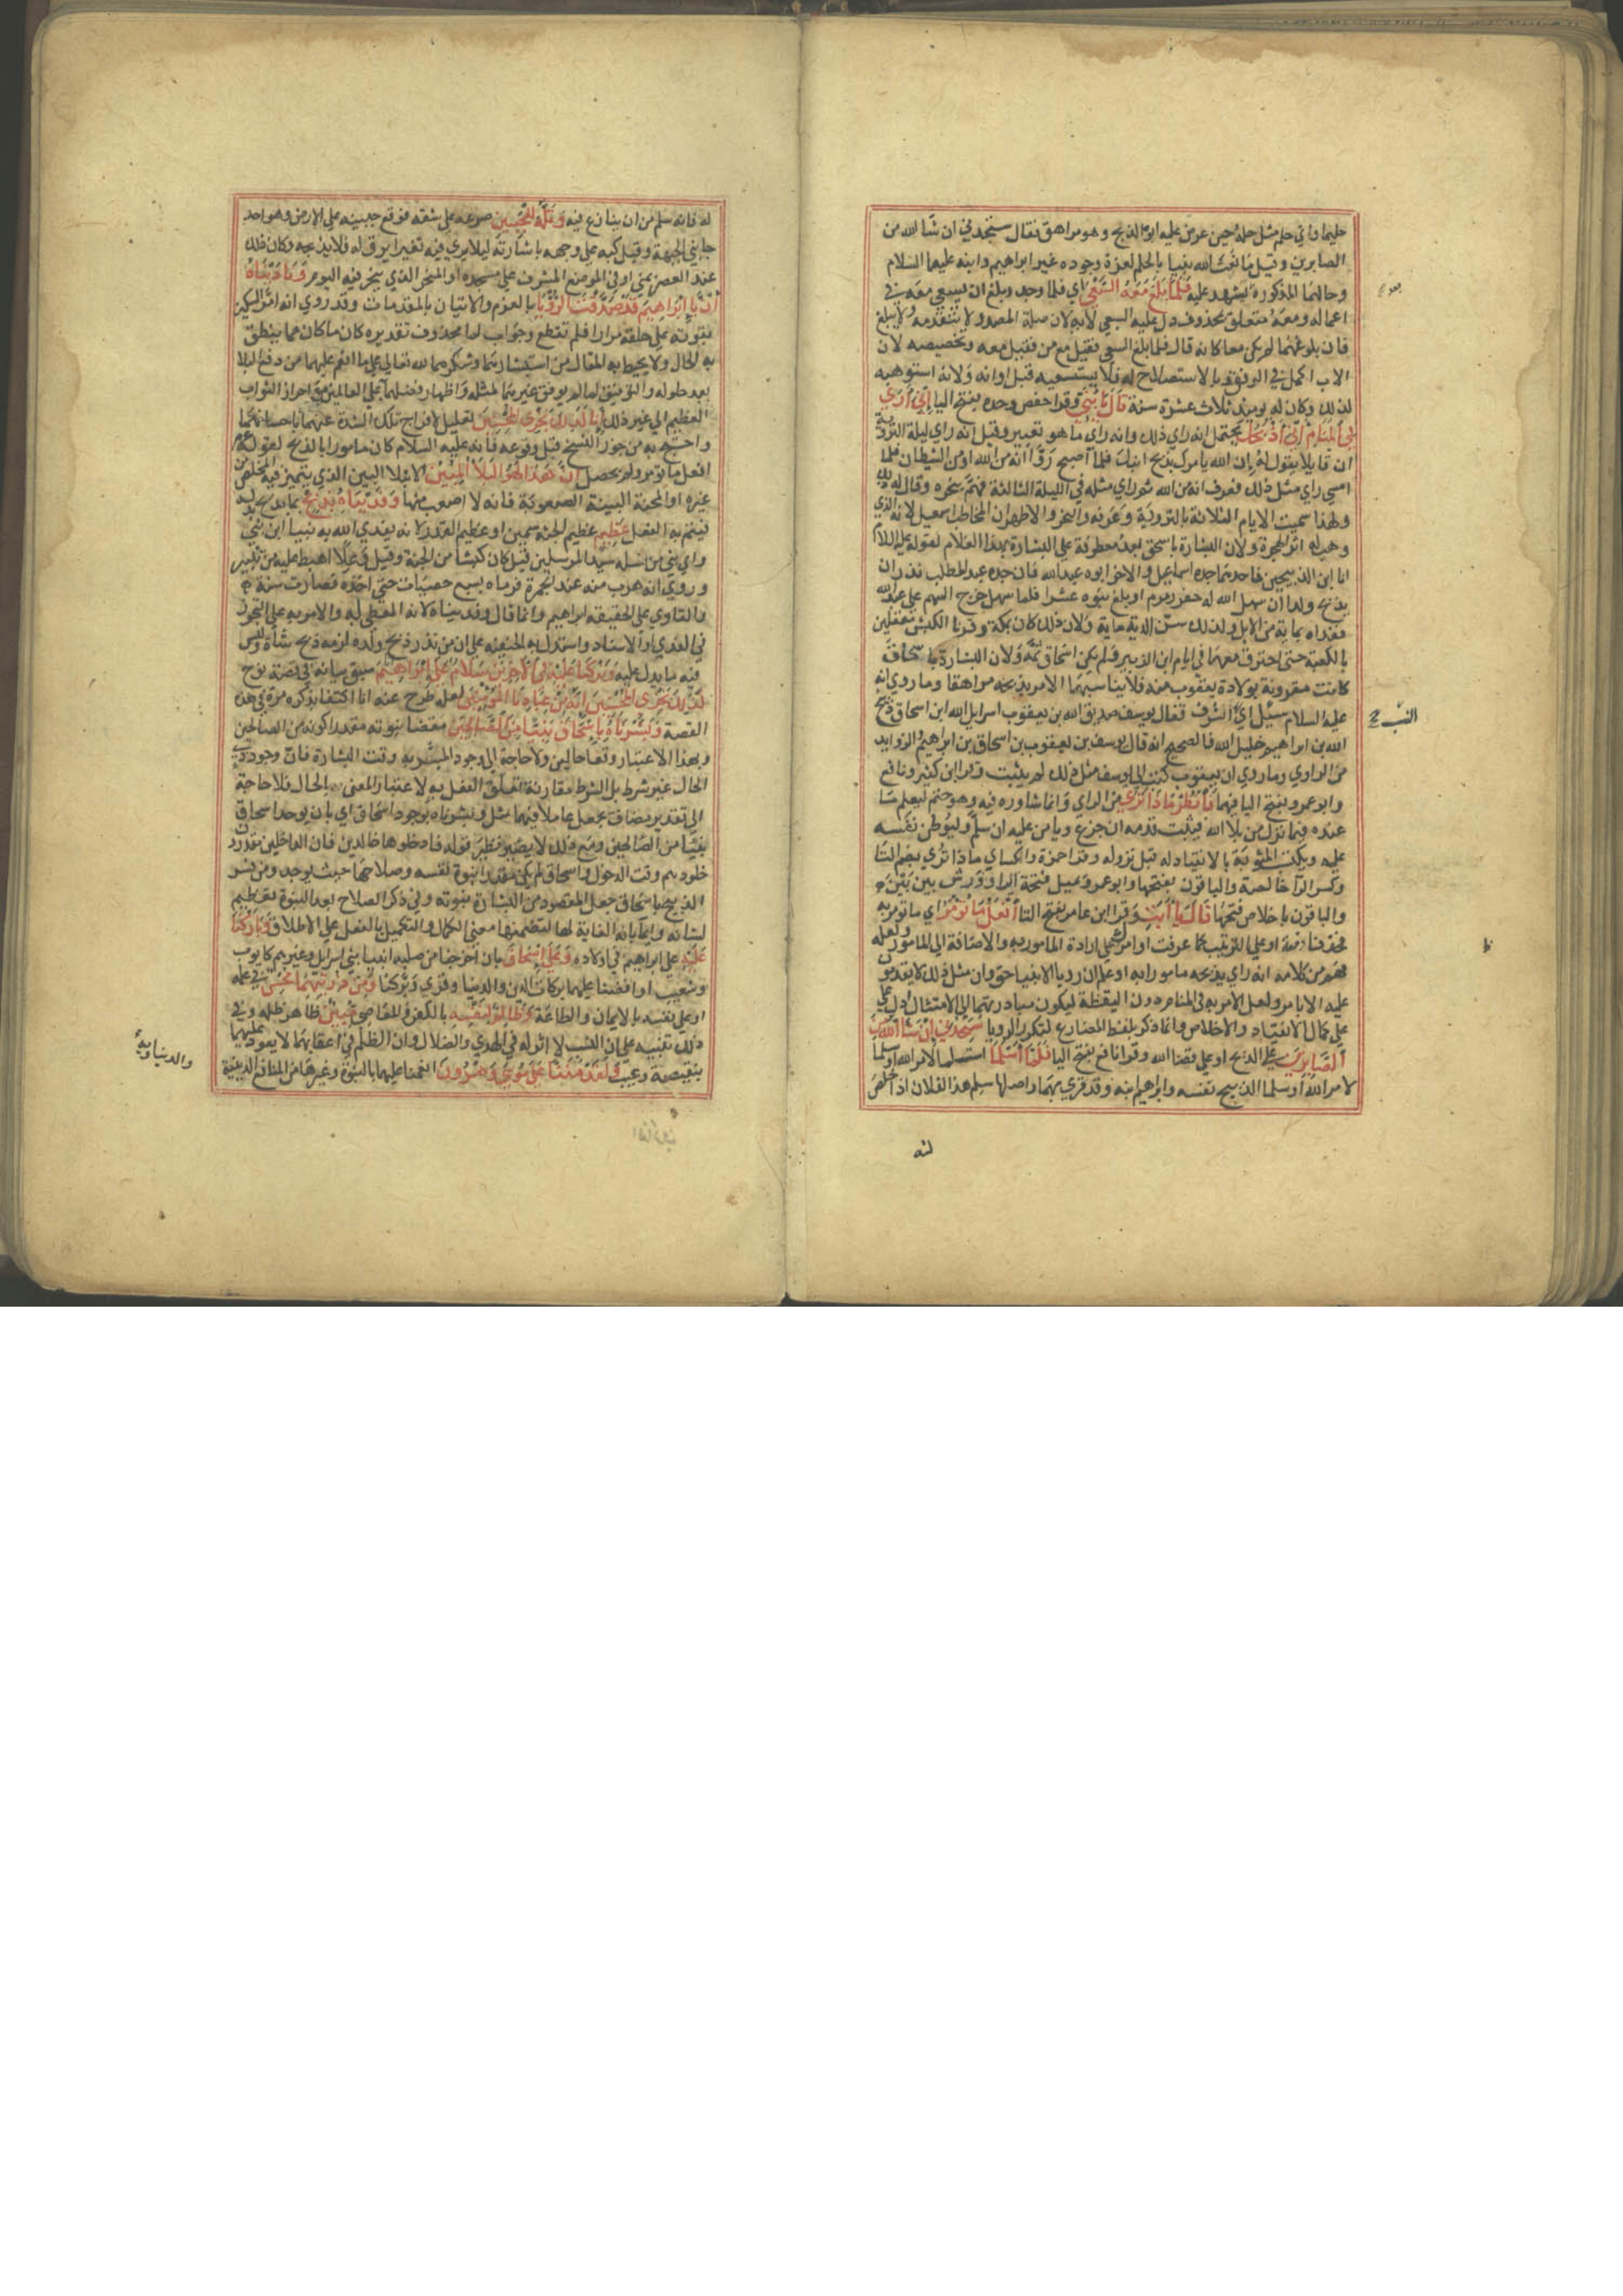 حليما واي حلم مثل حلمه حين عرض عليه ابوه الذبح وهو مراهق فقال ستجدني ان شا الله من
الصابرين وقيل ما نعت الله نبيا بالحلم لعزة وجوده غير ابراهيم وابنه عليهما السلام
وحالهما المذكورة تشهد عليه فلما بلغ معه السعي اي فلما وجد وبلغ ان يسعي معه في
اعماله ومعه متعلق بمحذوف دل عليه السعي لا به لان صلة المصدر لا يتقدمه ولا ببلغ
فان بلوغهما لم يكن معا كانه قال فلما بلغ السعي فقيل مع من فقيل معه وتخصيصه لان
الاب اكمل في الرفق وبالاستصلاح له فلا يستسعيه قبل اوانه ولانه استوهبه
لذلك وكان له يومئذ ثلاث عشرة سنة قال يا بني وقرا حفص وحده بفتح اليا اني اري
في المنام اني اذبحك يحتمل انه راي ذلك وانه راي ما هو تعبيره وقيل انه راي ليلة التروية
ان قايلا يقول له ان الله يامرك بذبح ابنك فلما اصبح روا انه من الله او من الشيطان فلما
امسي راي مثل ذلك فعرف انه من الله ثم راي مثله في الليلة الثالثة فهم بنحره وقال له ذلك
ولهذا سميت الايام الثلاثة بالتروية وعرفه والنحر والاظهر ان المخاطب اسمعيل لانه الذي
وهب له اثر الهجرة ولان البشارة باسحق بعد معطوفة علي البشارة بهذا الغلام لقوله عليه السلام
انا ابن الذبيحين فاحدهما جده اسماعيل والاخر ابوه عبد الله فان جده عبد المطلب نذر ان
يذبح ولدا ان سهل الله له حفر زمزم او بلغ بنوه عشرا فلما سهل خرج السهم علي عبد الله
ففداه بماية من الابل ولذلك سنت الدية ماية ولان ذلك كان بمكة وقرنا الكبش معلقين
بالكعبة حتى احترق معها في ايام ابن الزبير ولم يكن اسحاق ثمه ولان البشارة باسحاق
كانت مقرونة بولادة يعقوب منه فلا يناسبها الامر بذبحه مراهقا وما روي انه
عليه السلام سئل اي الشرف فقال يوسف صديق الله بن يعقوب اسرايل الله ابن اسحاق ذبيح
الله بن ابراهيم خليل الله فالصحيح انه قال يوسف بن يعقوب بن اسحاق بن ابراهيم والزوايد
من الراوي وما روي ان يعقوب كتب الي يوسف مثل ذلك لم يثبت وقرا ابن كثير ونافع
وابو عمرو بفتح اليا فيهما فانظر ماذا تري من الراي وانما شاوره فيه وهو حتم ليعلم ما
عنده فيما نزل من بلا الله فيثبت قدمه ان جزع ويامن عليه ان سلم وليوطن نفسه
عليه ويكتسب المثوبة بالانقياد له قبل نزوله وقرا حمزة والكساي ماذا تري بضم التا
وكسر الرآ خالصة والباقون بفتحها وابو عمرو يميل فتحة الرا وورش بين بين
والباقون باخلاص فتحها قال يا ابت وقرا ابن عامر بفتح التا افعل ما تؤمر اي ما تومر به
فحذفنا دفعة او علي الترتيب كما عرفت او امرك علي ارادة المامور به والاضافة الي المامور ولعله
فهم من كلامه انه راي يذبحه مامورا به او علم ان رويا الانبيا حق وان مثل ذلك لا يقدمون
عليه الا بامر ولعل الامر به في المنام دون اليقظة ليكون مبادرتهما الي الامتثال ادل علي
كمال الانقياد والاخلاص وانما ذكر بلفظ المضارع لتكرر الرويا ستجدني ان شا الله من
الصابرين علي الذبح او علي قضا الله وقرا نافع بفتح اليا فلما اسلما استسلما لامر الله او سلما
لامر الله او سلما الذبيح نفسه وابراهيم ابنه وقد قري بهما واصلها سلم هذا لفلان اذا خلص
له
له فانه سلم من ان ينازع فيه وتله للجبين صرعه علي شقه فوقع جبينه علي الارض وهو احد
جانبي الجبهة وقيل كبه علي وجهه باشارته ليلا يري فيه تغيرا يرق له فلا يذبحه وكان ذلك
عند الصخر بمني او في الموضع المشرف علي مسجده او المنحر الذي ينحر فيه اليوم وناديناه
ان يا ابراهيم قد صدقت الرؤيا بالعزم والاتيان بالمقدمات وقد روي انه امر السكين
بقوته علي حلقه مرارا فلم تقطع وجواب لما محذوف تقديره كان ما كان مما ينطق
به الحال ولا يحيط به المقال من استبشارهما وشكرهما لله تعالي علي ما انعم عليهما من دفع البلا
بعد حلوله والتوفيق لما لم يوفق غيرهما لمثله واظهار فضلهما علي العالمين مع احراز الثواب
العظيم الي غير ذلك انا كذلك نجزي المحسنين تعليل لافراج تلك الشدة عنهما باحسانهما
واحتج به من جوز النسخ قبل وقوعه فانه عليه السلام كان مامورا بالذبح لقوله
افعل ما تومر ولم يحصل ان هذا لهو البلا المبين الابتلا البين الذي يتميز فيه المخلص من
غيره او المحنة البينة الصعوبة فانه لا اصعب منها وفديناه بذبح بما يذبح بدله
فيتم به الفعل عظيم عظيم الجثة سمين او عظيم القدر لانه يفدي الله به نبيا ابن نبي
واي نبي من نسله سيد المرسلين قيل كان كبشا من الجنة وقيل وعلا اهبط عليه من ثبير
وروي انه هرب منه عند الجمرة فرماه بسبع حصيات حتي اخذه فصارت سنة
والفادي علي الحقيقة ابراهيم وانما قال وفديناه لانه المعطي له والامر به علي التجوز
في الفدي او الاسناد واستدل به الحنفية علي ان من نذر ذبح ولده لزمه ذبح شاة وليس
فيه ما يدل عليه وتركنا عليه في الاخرين سلام علي ابراهيم سبق بيانه في قصة نوح
كذلك نجزي المحسنين انه من عبادنا المؤمنين لعله طرح عنه انا اكتفا بذكره مرة في هذه
القصة وبشرناه باسحاق نبيا من الصالحين مقضيا نبوته مقدرا كونه من الصالحين
وبهذا الاعتبار وقعا حالين ولا حاجة الي وجود المبشر به وقت البشارة فان وجود ذي
الحال غير شرط بل الشرط مقارنة تعلق الفعل به لاعتبار المعني بالحال فلا حاجة
الي تقدير مضاف يجعل عاملا فيهما مثل وبشرناه بوجود اسحاق اي بان يوجد اسحاق
نبيا من الصالحين ومع ذلك لا يصير نظير قوله فادخلوها خالدين فان الداخلين مقدرون
خلودهم وقت الدخول واسحاق لم يكن مقدرا نبوة نفسه وصلاحها حيث يوجد ومن فسر
الذبيح باسحاق جعل المقصود من البشارة نبوته وفي ذكر الصلاح بعد النبوة تعظيم
لشانه وايما بانه الغاية لها لتضمنها معني الكمال والتكميل بالفعل علي الاطلاق وباركنا
عليه علي ابراهيم في اولاده وعلي اسحاق بان اخرجنا من صلبه انبيا بني اسرايل وغيرهم كايوب
وشعيب او افضنا عليهما بركات الدين والدنيا وقري وبركنا ومن ذريتهما محسن في عمله
او علي نفسه بالايمان والطاعة وظالم لنفسه بالكفر والمعاصي مبين ظاهر ظلمه وفي
ذلك تنبيه علي ان النسب لا اثر له في الهدي والضلال وان الظلم في اعقابهما لا يعود عليهما
بنقيصة وعيب ولقد مننا علي موسي وهرون انعمنا عليهما بالنبوة وغيرها من المنافع الدينية
والدنياوية